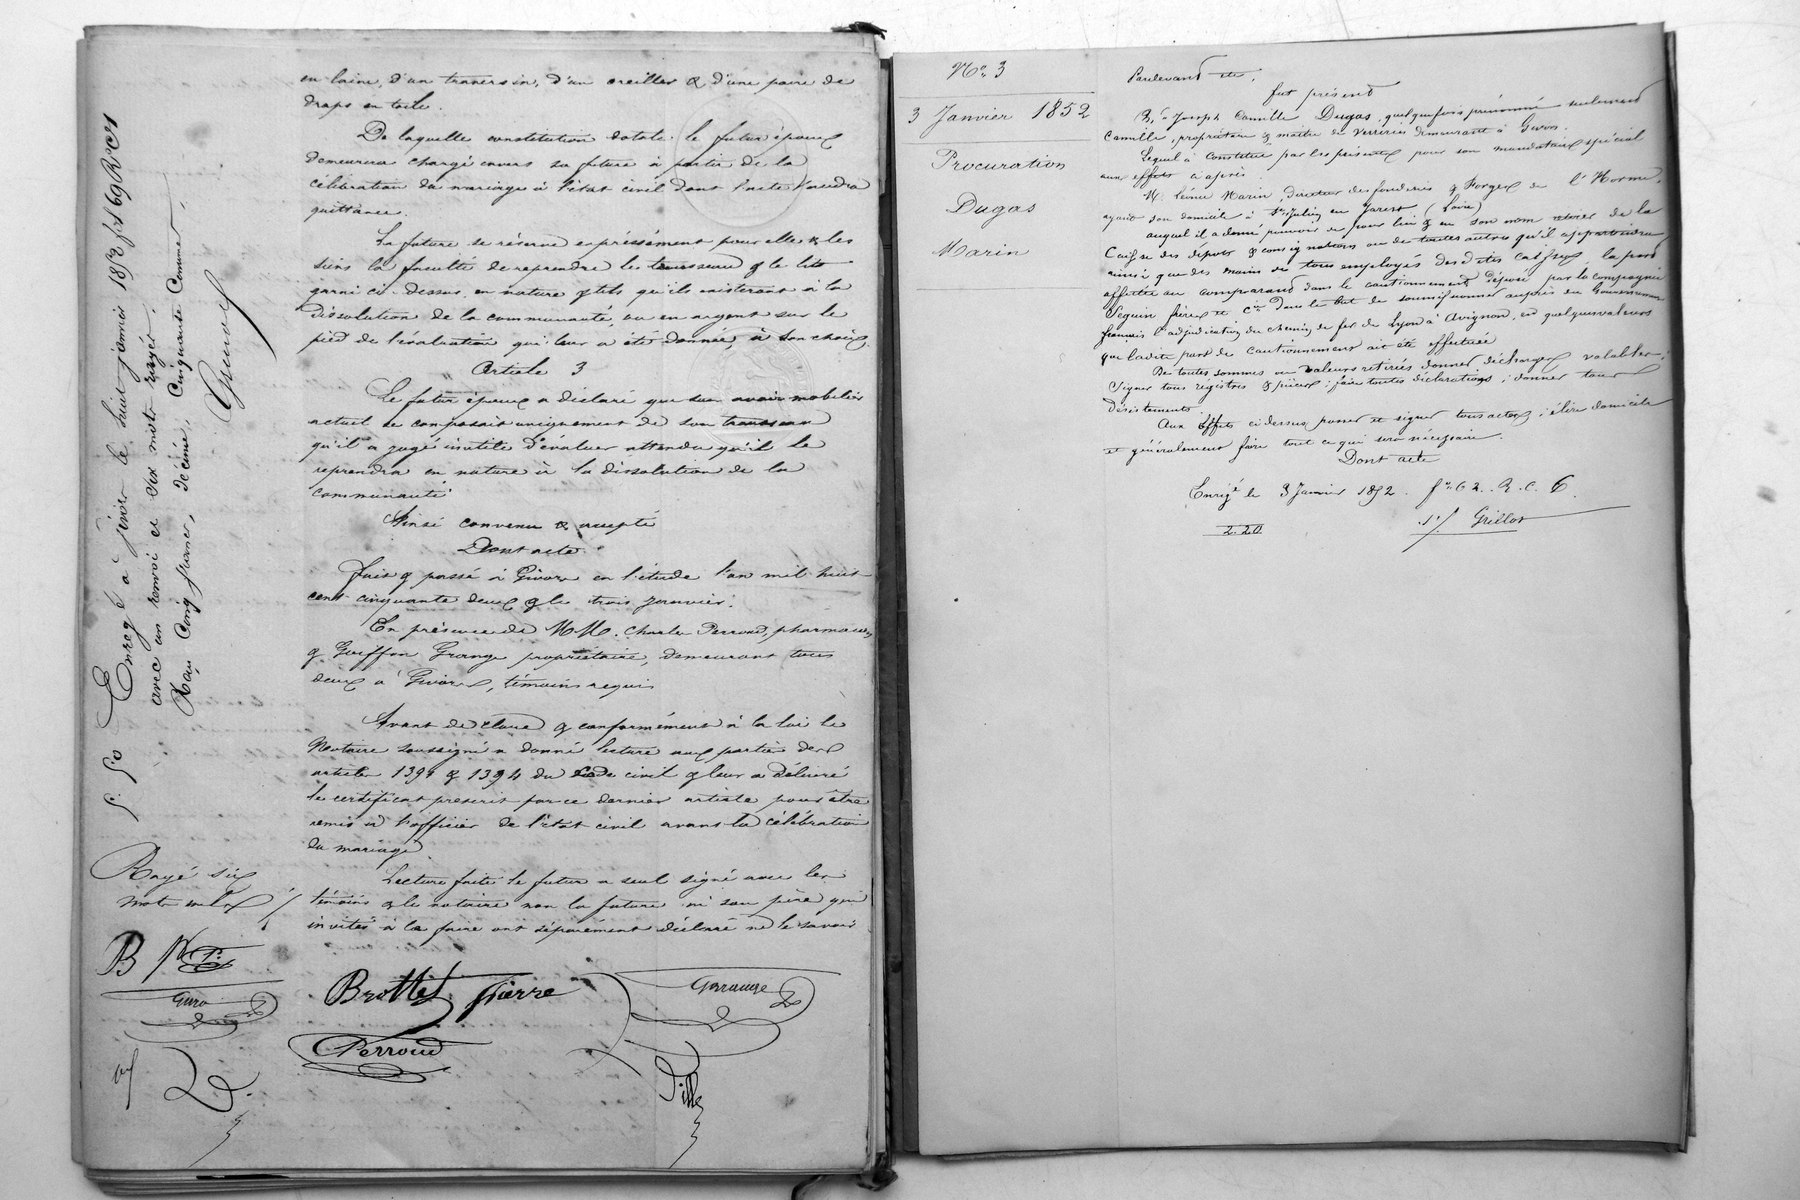 en laine, d'un traversin, d'un oreiller & d'une paire de
draps en toile.
De laquelle constitution dotale le futur époux
demeurera chargé envers sa future à partir de la
célébration du mariage à l'état civil dont l'acte vaudra
quittance.
La future se réserve expressément pour elle & les
siens la faculté de reprendre les trousseau & le lit
garni ci-dessus en nature & tels qu'ils existeront à la
dissolution de la communauté, ou en argent sur le
pied de l'évaluation qui leur a été donnée, à son choix.
Article 3
Le futur époux a déclaré que son avoir mobilier
actuel se composait uniquement de son trousseau
qu'il a jugé inutile d'évaluer attendu qu'il le
reprendra en nature à la dissolution de la
communauté
Ainsi convenu & accepté
Dont acte
Fait & passé à Givors en l'étude l'an mil huit
cent cinquante deux & le trois Janvier.
En présence de M.M. Charles Perroud, pharmacien
& Goiffon Grange propriétaire, demeurant tous
deux à Givors, témoins requis
Avant de clore & conformément à la loi le
Notaire soussigné a donné lecture aux parties des
articles 1391 & 1394 du Code civil & leur a délivré
le certificat prescrit par ce dernier article pour être
remis à l'officier de l'état civil avant la célébration
du mariage
Lecture faite le futur a seul signé avec les
témoins & le notaire non la future ni son père qui
invités à le faire ont séparément déclaré ne le savoir
Brottet Pierre
Perroud
Enregé à Givors le huit janvier 1852 fol 69 Ro Ces
avec un renvoi et six mots rayés.
Reçu Cinq francs, décime, Cinquante Centimes.
5 50
Rayé six
mots nuls
B P
No. 3
3 Janvier 1852
Procuration
Dugas
Marin
Pardevant etc,
fut présent
Camille Dugas, quelquefois prénommé seulement
Camille, propriétaire & maître de verreries demeurant à Givors.
Lequel a constitué par les présentes pour son mandataire spécial
aux effets ci après
Marin, Directeur des fonderies & Forges de l'Horme,
ayant son domicile à St Julien en Jarest (Loire)
auquel il a donné pouvoir de pour lui & en son nom retirer de la
Caisse des dépôts & consignations ou de toutes autres qu'il appartiendra
ainsi que des mains de tous employés desdites caisses, la part
afférente au comparant dans le cautionnement déposé par la compagnie
Seguin frères et Cie dans le but de soumissionner auprès du Gouvernement
français l'adjudication du chemin de fer de Lyon à Avignon, en quelques valeurs
que ladite part de cautionnement ait été effectuée
De toutes sommes ou valeurs retirées donner décharges valables;
signer tous registres & pièces; faire toutes déclarations; donner tous
désistements
Aux effets ci dessus passer et signer tous actes; élire domicile
et généralement faire tout ce qui sera nécessaire.
Dont acte
Enrégé le 3 Janvier 1852. fo 62. R. C. 6.
2.20
Grillot